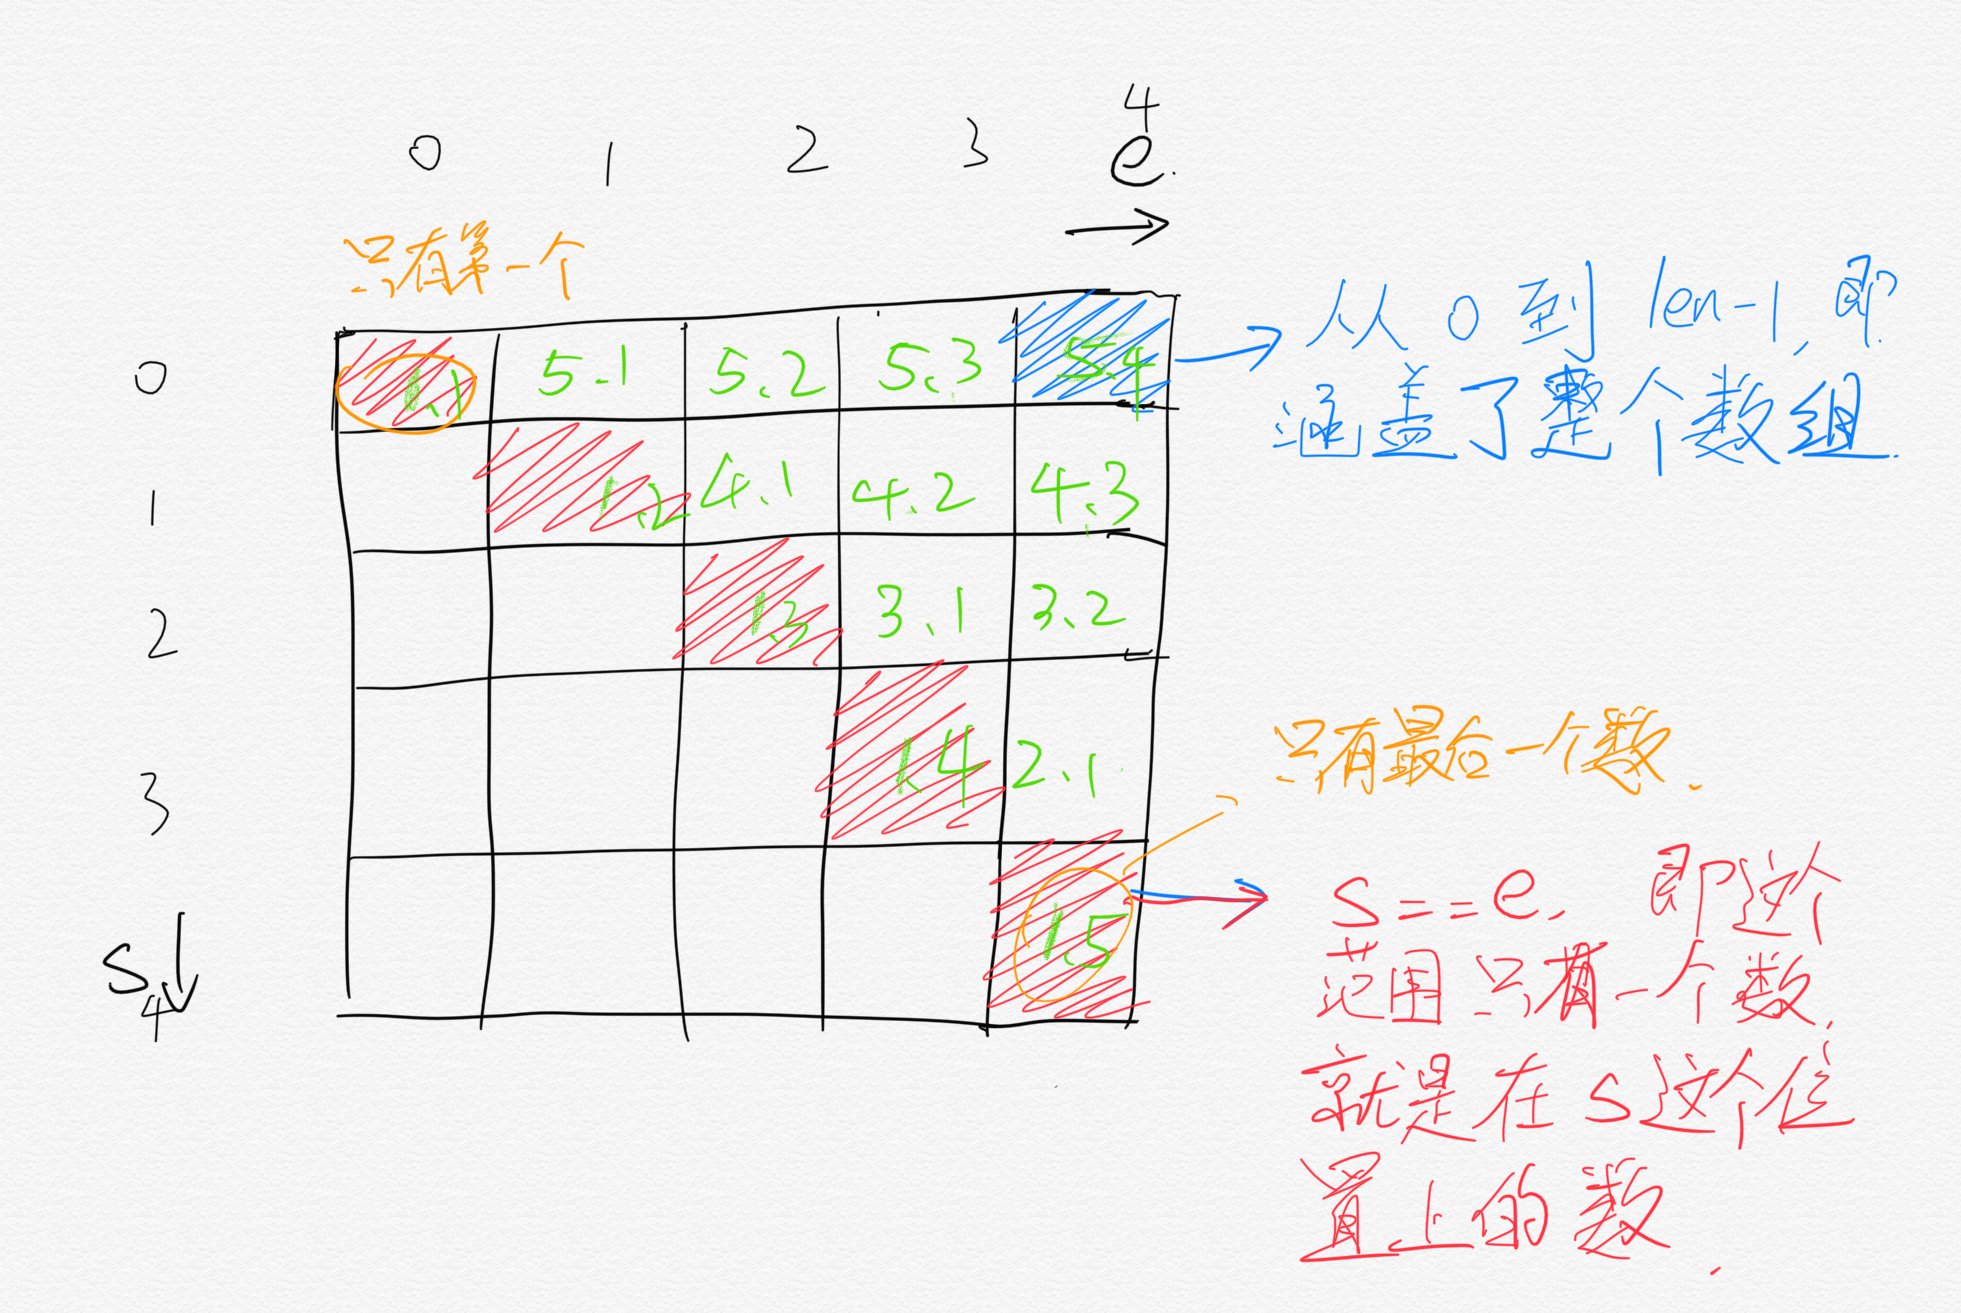 4
0 1 2 3 e.
只有第一个
0 1.1 5.1 5.2 5.3 5.4
1 1.2 4.1 4.2 4.3
2 1.3 3.1 3.2
3 1.4 2.1
s 1.5
4
从 0 到 len-1, 即
涵盖了整个数组.
只有最后一个数.
s==e, 即这个
范围只有一个数,
就是在 s 这个位
置上的数.